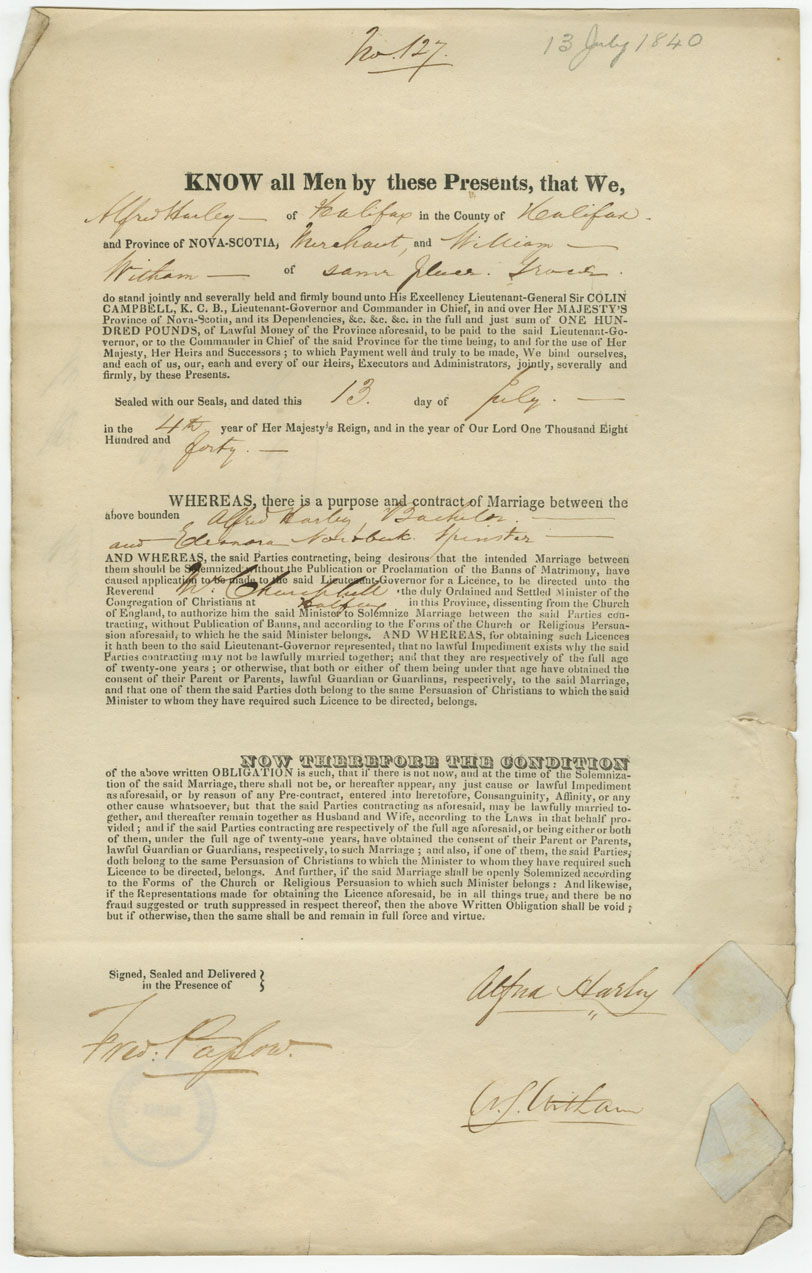 No. 127.
13 July 1840
KNOW all Men by these Presents, that We,
Alfred Harley of Halifax in the County of Halifax.
and Province of NOVA-SCOTIA, Merchant, and William
Witham of same place. Grocer.
do stand jointly and severally held and firmly bound unto His Excellency Lieutenant-General Sir COLIN
CAMPBELL, K. C. B., Lieutenant-Governor and Commander in Chief, in and over Her MAJESTY'S
Province of Nova-Scotia, and its Dependencies, &c. &c. &c. in the full and just sum of ONE HUN-
DRED POUNDS, of Lawful Money of the Province aforesaid, to be paid to the said Lieutenant-Go-
vernor, or to the Commander in Chief of the said Province for the time being, to and for the use of Her
Majesty, Her Heirs and Successors ; to which Payment well and truly to be made, We bind ourselves,
and each of us, our, each and every of our Heirs, Executors and Administrators, jointly, severally and
firmly, by these Presents.
Sealed with our Seals, and dated this 13. day of July.
in the 4th year of Her Majesty's Reign, and in the year of Our Lord One Thousand Eight
Hundred and forty.
WHEREAS, there is a purpose and contract of Marriage between the
above bounden Alfred Harley, Bachelor.
and Eleonora Spinster
AND WHEREAS, the said Parties contracting, being desirous that the intended Marriage between
them should be Solemnized without the Publication or Proclamation of the Banns of Matrimony, have
caused application to be made to the said Lieutenant-Governor for a Licence, to be directed unto the
Reverend W. Churchill the duly Ordained and Settled Minister of the
Congregation of Christians at Halifax in this Province, dissenting from the Church
of England, to authorize him the said Minister to Solemnize Marriage between the said Parties con-
tracting, without Publication of Banns, and according to the Forms of the Church or Religious Persua-
sion aforesaid, to which he the said Minister belongs. AND WHEREAS, for obtaining such Licences
it hath been to the said Lieutenant-Governor represented, that no lawful Impediment exists why the said
Parties contracting may not be lawfully married together; and that they are respectively of the full age
of twenty-one years ; or otherwise, that both or either of them being under that age have obtained the
consent of their Parent or Parents, lawful Guardian or Guardians, respectively, to the said Marriage,
and that one of them the said Parties doth belong to the same Persuasion of Christians to which the said
Minister to whom they have required such Licence to be directed, belongs.
NOW THEREFORE THE CONDITION
of the above written OBLIGATION is such, that if there is not now, and at the time of the Solemniza-
tion of the said Marriage, there shall not be, or hereafter appear, any just cause or lawful Impediment
as aforesaid, or by reason of any Pre-contract, entered into heretofore, Consanguinity, Affinity, or any
other cause whatsoever, but that the said Parties contracting as aforesaid, may be lawfully married to-
gether, and thereafter remain together as Husband and Wife, according to the Laws in that behalf pro-
vided ; and if the said Parties contracting are respectively of the full age aforesaid, or being either or both
of them, under the full age of twenty-one years, have obtained the consent of their Parent or Parents,
lawful Guardian or Guardians, respectively, to such Marriage ; and also, if one of them, the said Parties,
doth belong to the same Persuasion of Christians to which the Minister to whom they have required such
Licence to be directed, belongs. And further, if the said Marriage shall be openly Solemnized according
to the Forms of the Church or Religious Persuasion to which such Minister belongs : And likewise,
if the Representations made for obtaining the Licence aforesaid, be in all things true, and there be no
fraud suggested or truth suppressed in respect thereof, then the above Written Obligation shall be void ;
but if otherwise, then the same shall be and remain in full force and virtue.
Signed, Sealed and Delivered }
in the Presence of
Alfred Harley
Fred: Passow.
W. S. Witham